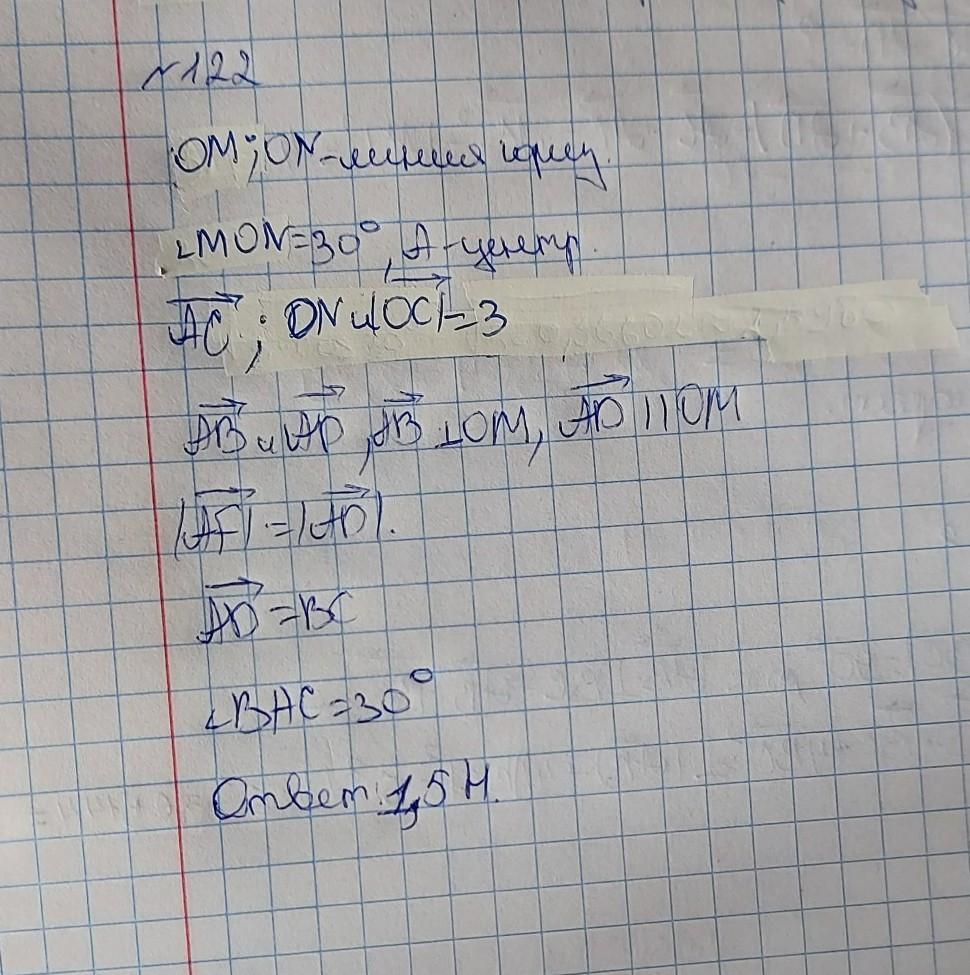 №122
OM; ON-линия
∠MON=30°, A-центр.
AC; ON и |OC|=3
AB и AD, AB ⊥ OM, AD || OM
|AF| = |AD|.
AD = BC
∠BAC = 30°
Ответ: 1,5 Н.